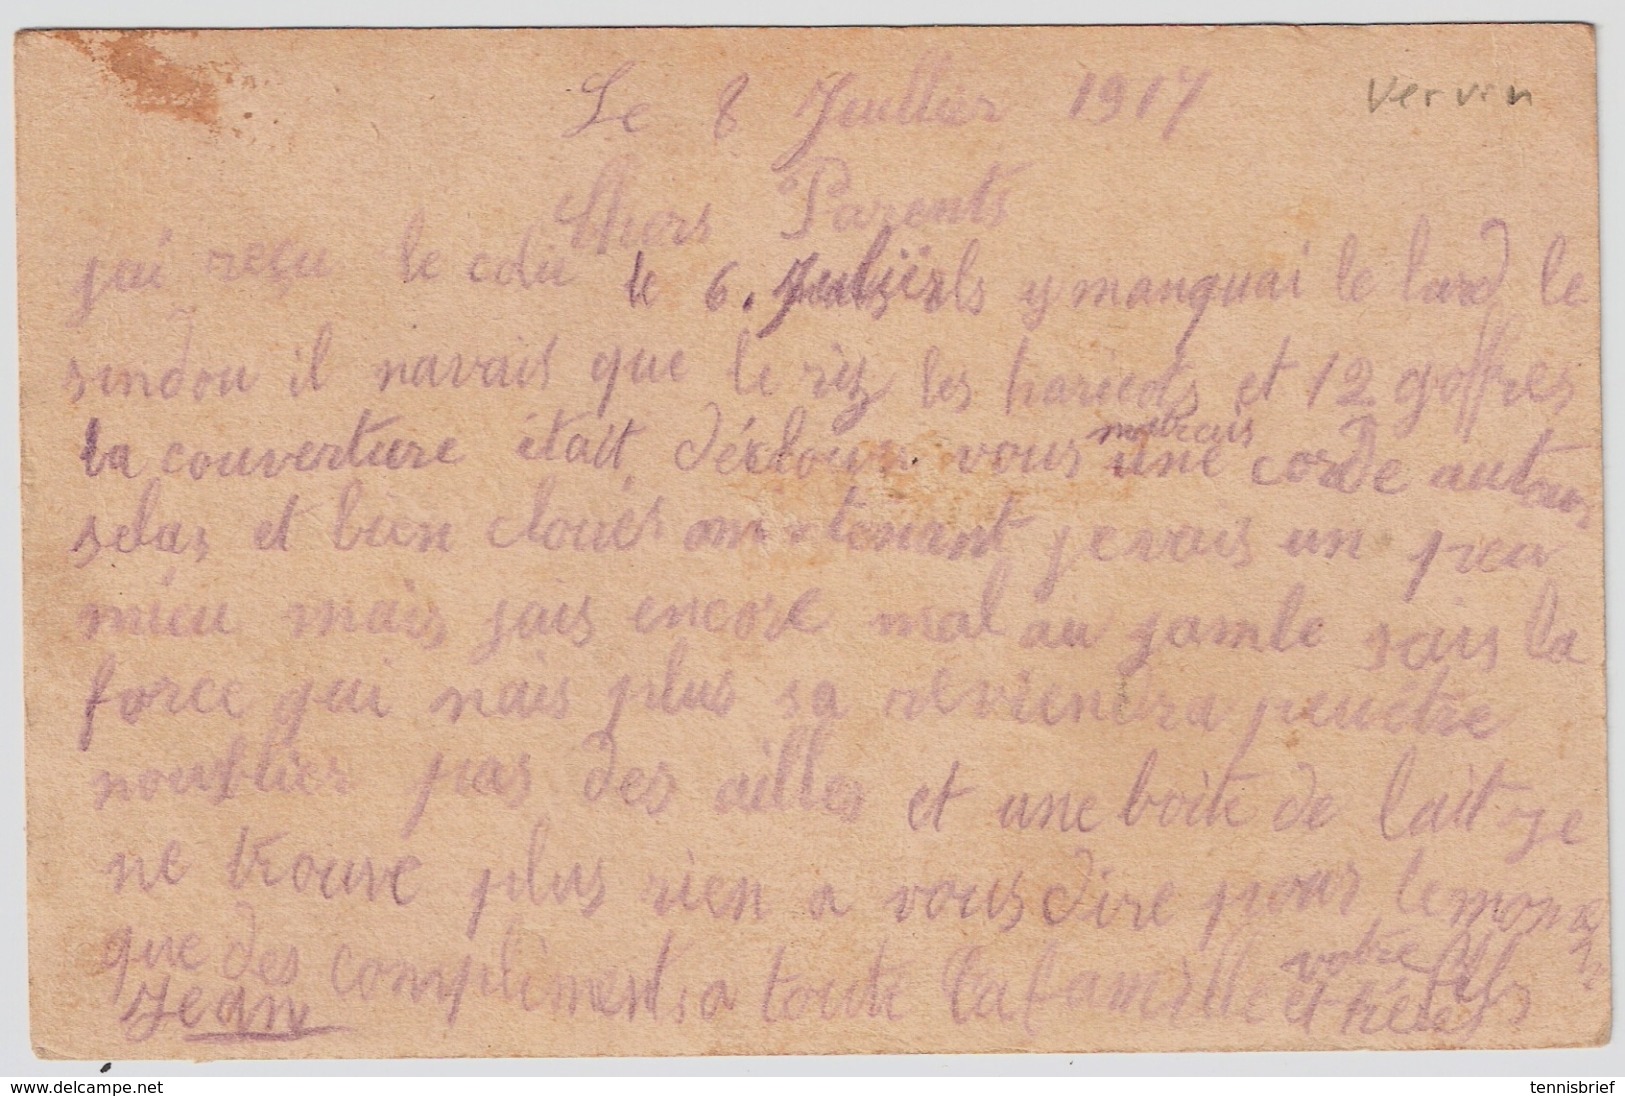 Le 8 Juullier 1917
Vervin
Chers Parents
jai reçu le colu le 6. y manquai le lard le
sindou il navais que le riz les haricots et 12 goffres
la couverture étatt vous mettrais une corde autour
selas et bien cloués jevais un peu
mieu mais jais encore mal au jambe sais la
force qui nais plus sa reviendra peuêtre
noublier pas des ailles et une boite de lait je
ne trouve plus rien a vous dire pour lemoment
que des compliments a toute la famille votre fils
Jean et frères
delcampe.net
tennisbrief